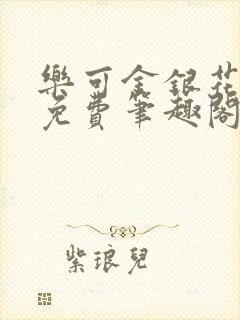 樂可金銀花
免費筆趣閣
紫琅兒